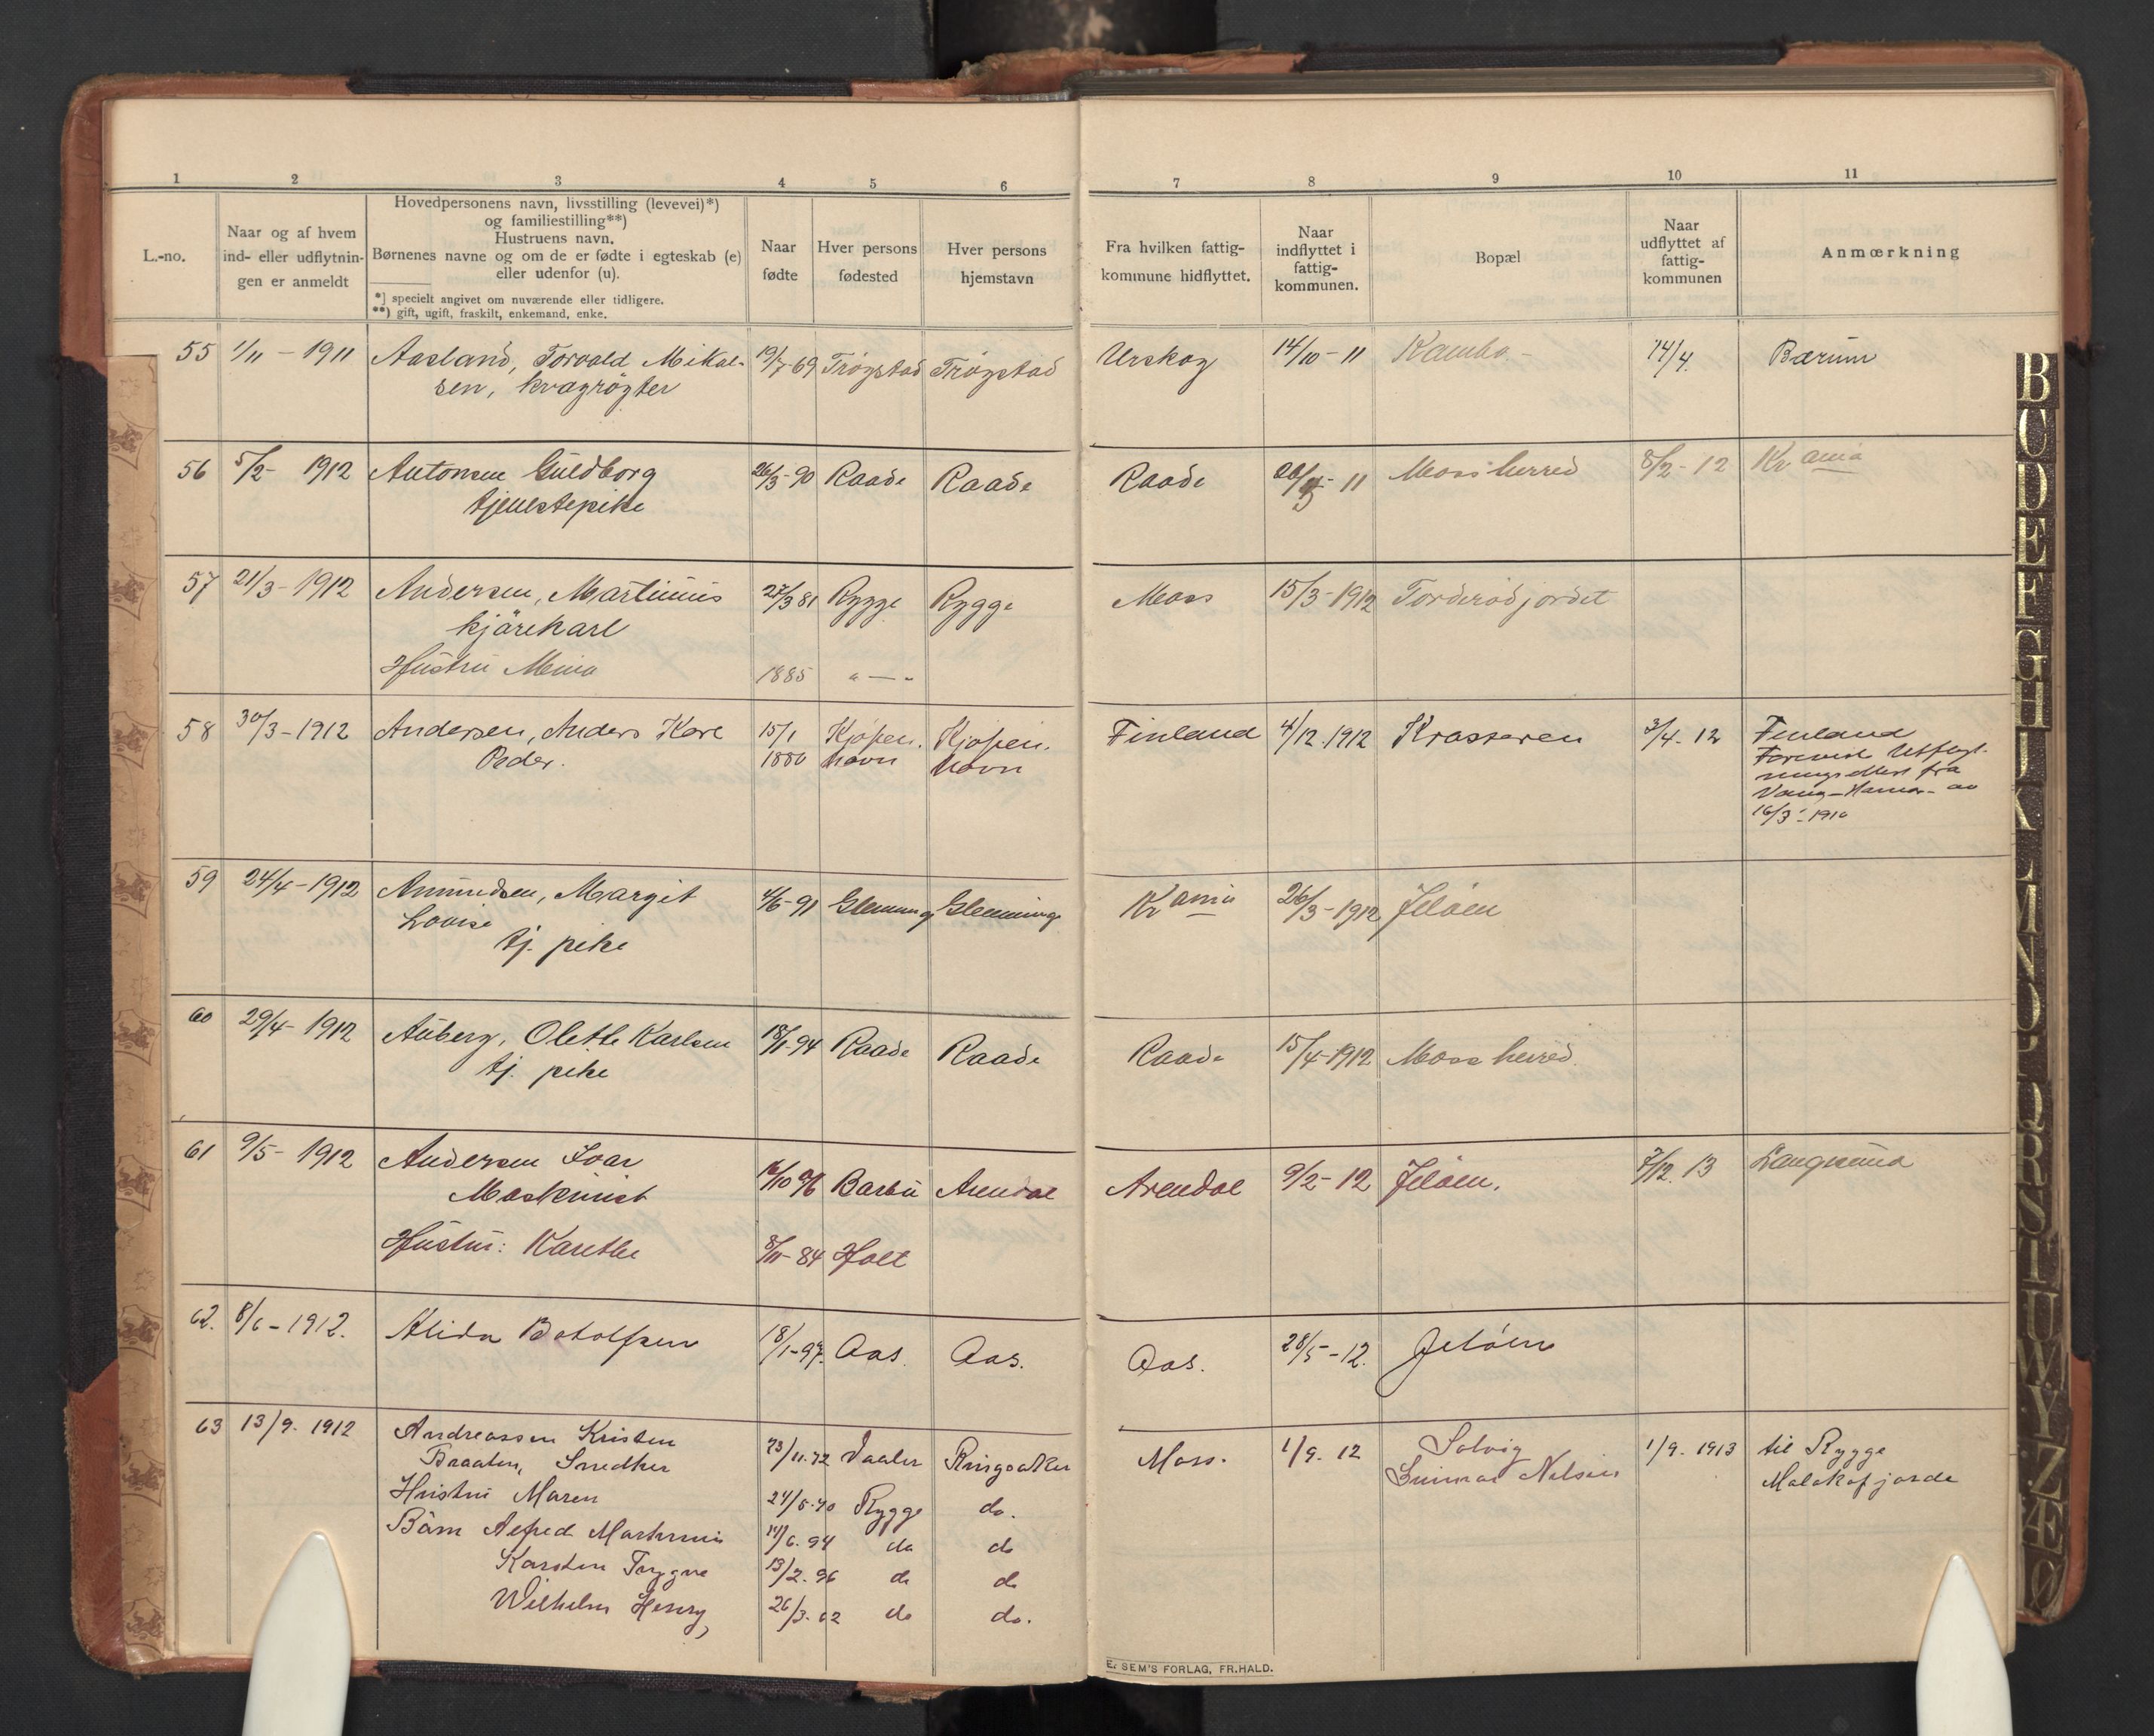 1 2 3 4 5 6 7 8 9 10 11
L.-no.
Naar og af hvem
ind- eller udflytnin-
gen er anmeldt
Hovedpersonens navn, livsstilling (levevei)*)
og familiestilling**)
Hustruens navn.
Børnenes navne og om de er fødte i egteskab (e)
eller udenfor (u).
*) specielt angivet om nuværende eller tidligere.
**) gift, ugift, fraskilt, enkemand, enke.
Naar
fødte
Hver persons
fødested
Hver persons
hjemstavn
Fra hvilken fattig-
kommune hidflyttet.
Naar
indflyttet i
fattig-
kommunen.
Bopæl
Naar
udflyttet af
fattig-
kommunen
Anmærkning
55 1/11 - 1911 Aasland, Torvald Mikal- 19/7 69 Trøgstad Trøgstad Urskog 14/10 - 11 Kambo - 14/4. Bærum
sen, kvægrøgter
56 5/2 - 1912 Antonsen Guldborg 26/3 - 90 Raade Raade Raade 11 Moss herred 8/2 - 12 Kr ania
tjenestepike
57 21/3 - 1912 Andersen, Martinius 27/3 81 Rygge Rygge Moss 15/3 - 1912 Torderødjordet
kjørekarl
Hustru Mina 1885 " — "
58 30/3 - 1912 Andersen, Anders Karl 15/1 Kjøpen. Kjøpen. Finland 4/12 1912 Krasseren 3/4 - 12 Finland
Peder. 1880 havn havn
fra
Vang - Hamar - av
16/3 - 1910
59 24/4 - 1912 Amundsen, Margit 4/6 - 91 Glemminge Glemminge Kr ania 26/3 - 1912 Jeløen
Lovise
tj. pike
60 29/4 - 1912 Auberg, Olette Karlsen 18/11 - 94 Raade Raade Raade 15/4 - 1912 Moss herred
tj. pike
61 9/5 - 1912 Andersen Ivar Barbu Arendal Arendal 9/2 - 12 Jeløen. 7/12. 13 Langesund
Maskinist
Hustru: Karethe 8/11 - 84 Holt
62. 8/6 - 1912. Alida Botolfsen 18/1 - 97. Aas. Aas. Aas. 28/5 - 12. Jeløen
63 13/9. 1912 Andreassen Kristen 23/11. 72 Vaaler Ringsaker Moss. 1/9. 12 Solvig 1/9. 1913 til Rygge
Braaten, Snedker Gunnar Nilsen Malakofjorde
Hustru Maren 24/5. 70 Rygge do.
Barn Alfred Martinius 14/6. 94 do do
Karsten Trygve 13/2. 96 do do
Wilhelm Henry, 26/3. 02 do do.
E. SEM'S FORLAG, FR.HALD.
B
C
D
E
F
G
H
I
K
L
M
N
O
P
Q
R
S
T
U
W
Y
Z
Æ
Ø